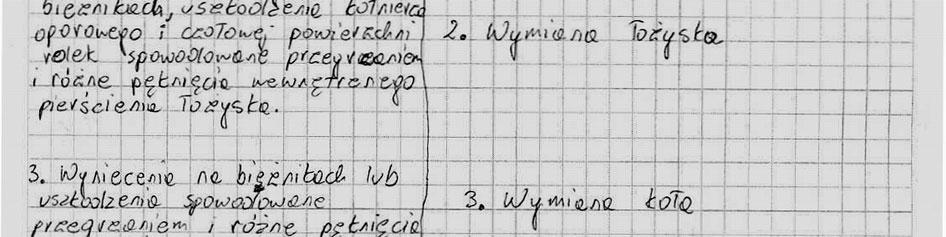 bieżnikach, uszkodzenie kołnierza
oporowego i czołowej powierzchni
rolek spowodowane przegrzaniem
i różne pęknięcia wewnętrznego
pierścienia łożyska.
2. Wymiana łożyska
3. Wgniecenia na bieżnikach lub
uszkodzenia spowodowane
przegrzaniem i różne pęknięcia
3. Wymiana koła